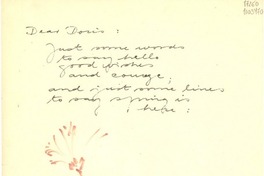 Dear Doris:
Just some words
to say hello
good wishes
and courage,
and just some lines
to say spring is
here: